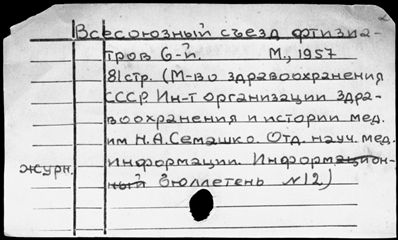 Всесоюзный съезд фтизиа-
тров 6-й. М., 1957
81стр. (М-во здравоохранения
СССР. Ин-т организации здра-
воохранения и истории мед.
им Н.А.Семашко. Отд. науч. мед.
журн. информации. Информацион-
ный бюллетень №12)